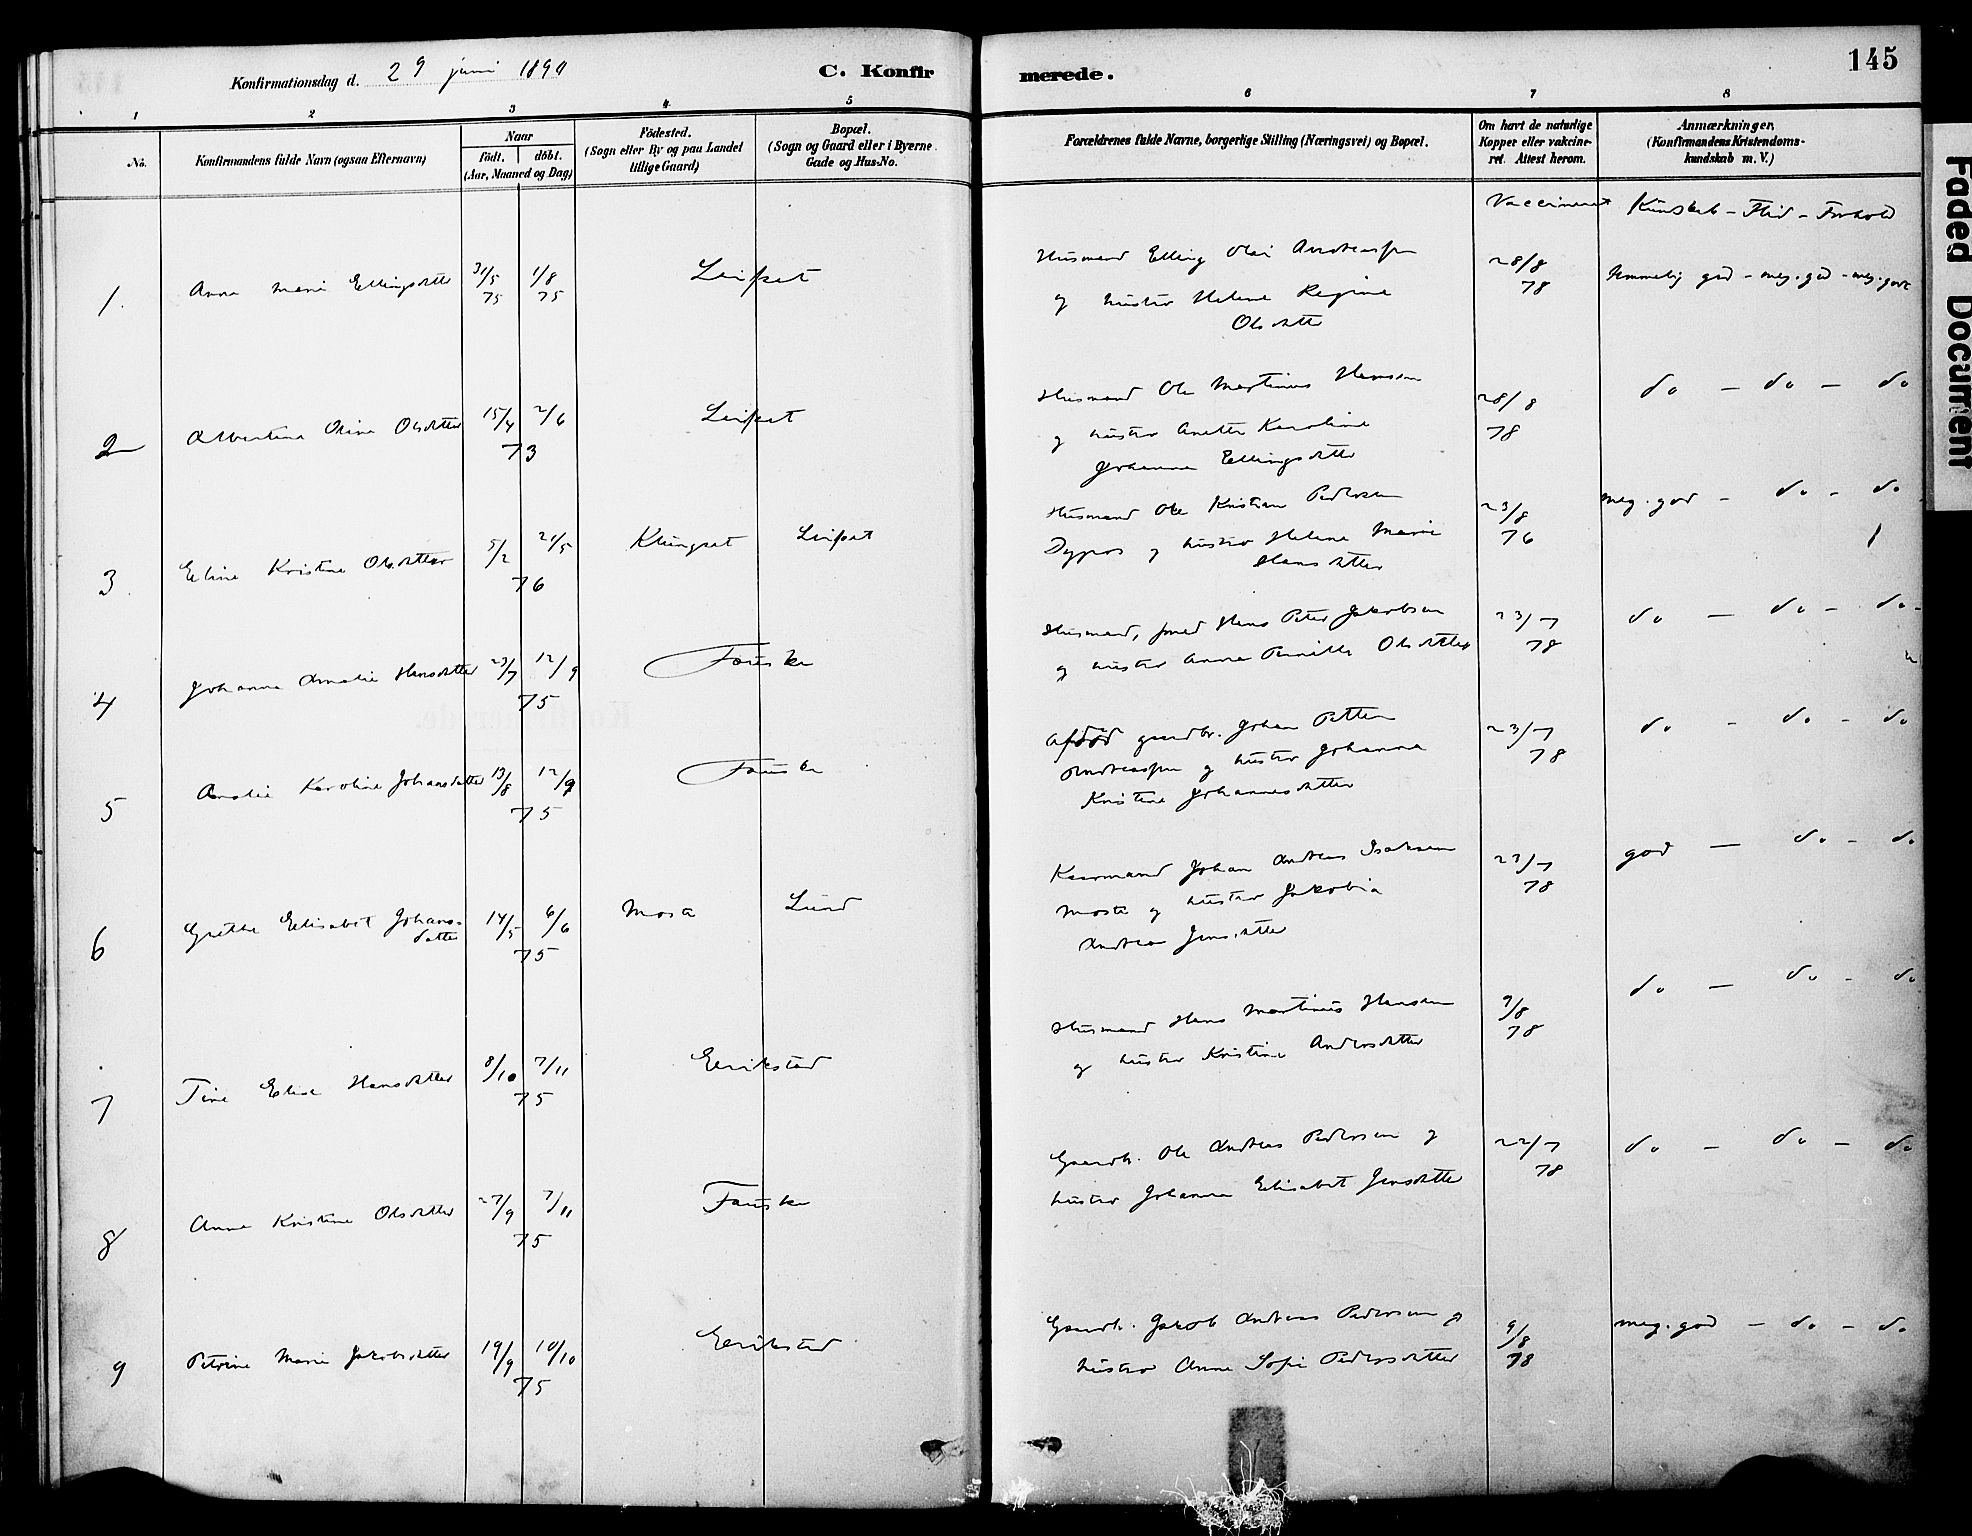 145
Konfirmationsdag d. 29 juni 1890
C. Konfirmerede.
1 2 3 4 5 6 7 8
No.
Konfirmandens fulde Navn (ogsaa Efternavn)
Naar
födt. döbt.
(Aar, Maaned og Dag)
Födested.
(Sogn eller By og paa Landet
tillige Gaard)
Bopæl.
(Sogn og Gaard eller i Byerne
Gade og Hus-No.
Forældrenes fulde Navne, borgerlige Stilling (Næringsvei) og Bopæl.
Om havt de naturlige
Kopper eller vakcine-
ret. Attest herom.
Anmærkninger.
(Konfirmandens Kristendoms-
kundskab m. V.)
Vaccineret Kundskab - Flid - Forhold
1. Anna Marie Ellingsdatter 31/5 75 1/8 75 Leifset
Husmand Elling Olai Andreassen
og hustru Helene Regine
Olsdatter
28/8 78 temmelig god - meg. god - meg. godt
2 Albertina Olina Olsdatter 15/4 2/6 73 Leifset
Husmand Ole Martinus Hansen
og hustru Anetta Karoline
Johanna Ellingsdatter
28/8 78 do - do - do
3. Eline Kristine Olsdatter 5/2 21/5 76 Klungset Leifset
Husmand Ole Kristian Pedersen
Dypos og hustru Helene Marie
Hansdatter
23/8 76 meg. god - do - do
4 Johanna Amalie Hansdatter 23/7 12/9 75 Fauske
Husmand, smed Hans Peter Jakobsen
og hustru Anna Pernille Olsdatter
23/7 78 do - do - do
5 Amalie Karoline Johansdatter 13/8 12/9 75 Fauske
Afdöd gaardbr. Johan Petter
Andreassen og hustru Johanna
Kristine Johannesdatter
23/7 78 do - do - do
6 Grethe Elisabet Johans-
datter 14/5 6/6 75 Mosa Lund
Kaarmand Johan Andreas Isaksen
Moste og hustru Jakobia
Andrea Jensdatter
23/7 78 god - do - do
7 Tine Elise Hansdatter 8/10 7/11 75 Eerikstad
Husmand Hans Martinus Hansen
og hustru Kristine Andersdatter
9/8 78 do - do - do
8 Anna Kristine Olsdatter 27/9 7/11 75 Fauske
Gaardb. Ole Andreas Pedersen og
hustru Johanna Elisabet Jensdatter
22/7 78 do - do - do
9 Petrine Marie Jakobsdatter 19/9 10/10 75 Eerikstad
Gaardb. Jakob Andreas Pedersen og
hustru Anne Sofie Pedersdatter
9/8 78 meg. god - do - do
Faded Document